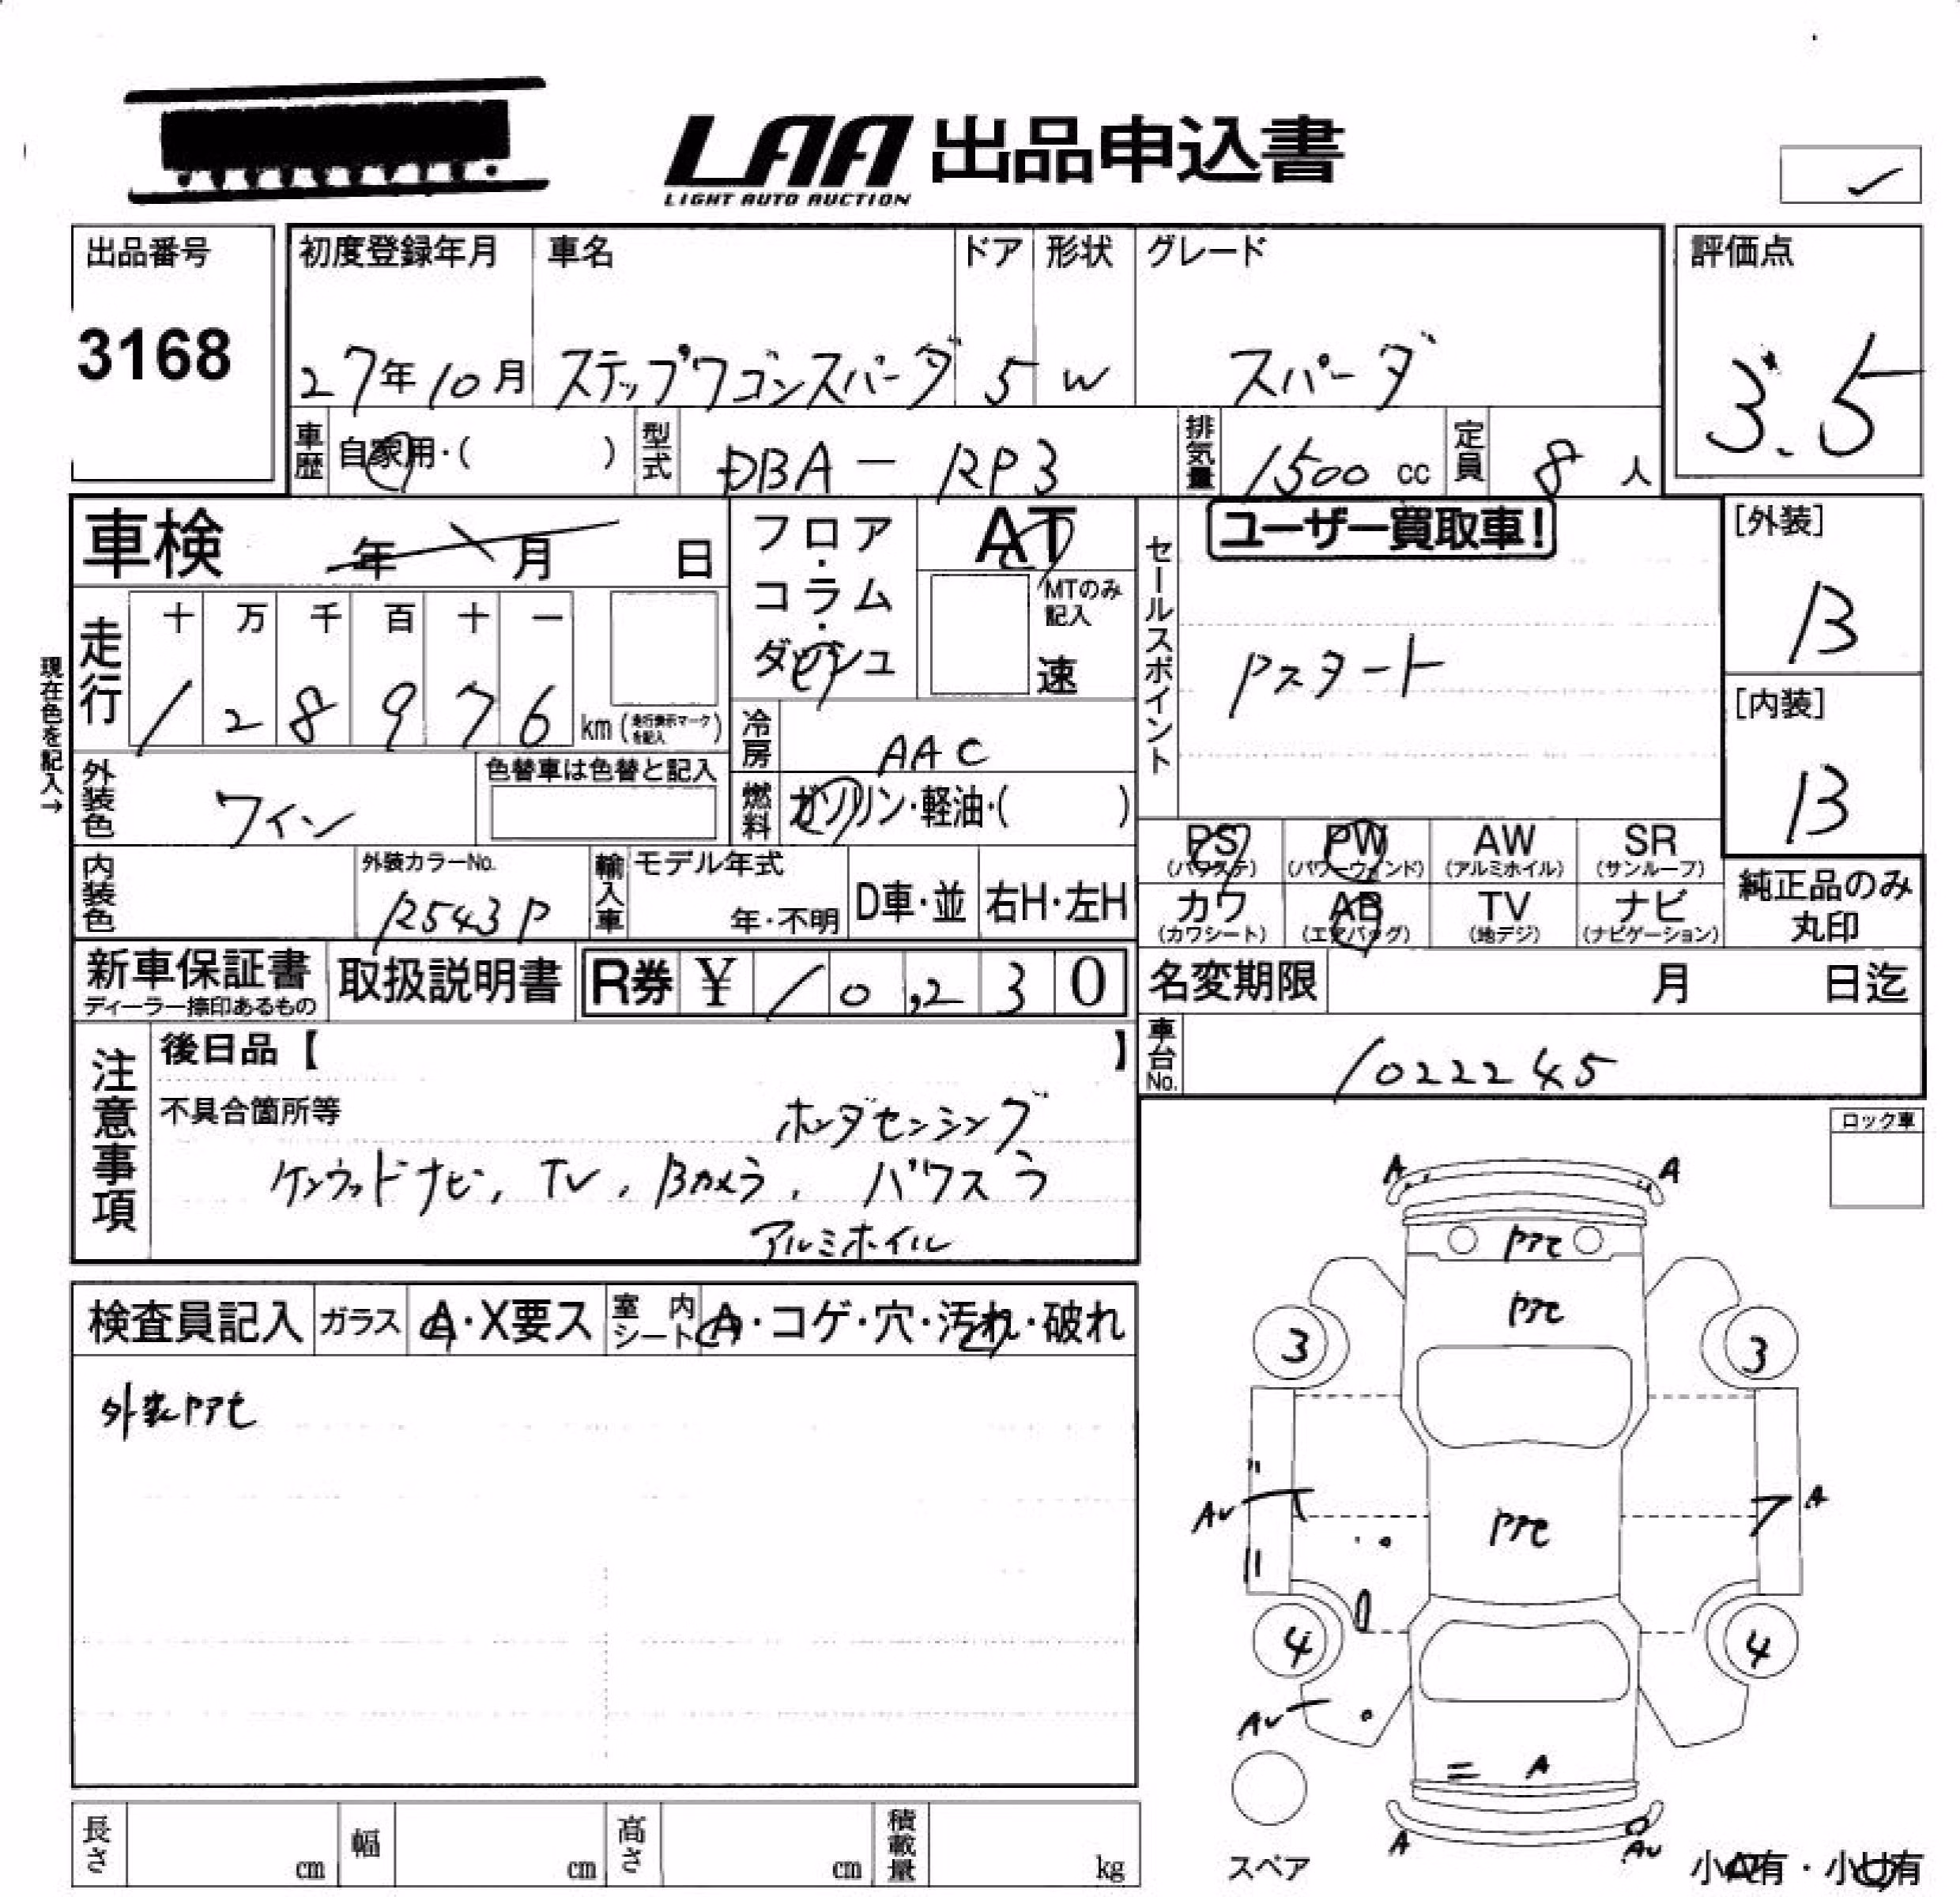 LAA 出品申込書
LIGHT AUTO AUCTION
出品番号
3168
初度登録年月
27年10月
車名
ステップワゴンスパーダ
ドア
5
形状
W
グレード
スパーダ
評価点
3.5
車歴
自家用・( )
型式
DBA - RP3
排気量
1500 cc
定員
8 人
車検
年 月 日
フロア・コラム・ダッシュ
AT
MTのみ記入
速
セールスポイント
ユーザー買取車!
Pスタート
[外装]
B
[内装]
B
現在色を記入→
走行
十 万 千 百 十 一
1 2 8 9 7 6 km (走行表示マークを記入)
冷房
AAC
外装色
ワイン
色替車は色替と記入
燃料
ガソリン・軽油・( )
PS (パワステ)
PW (パワーウィンド)
AW (アルミホイル)
SR (サンルーフ)
カワ (カワシート)
AB (エアバッグ)
TV (地デジ)
ナビ (ナビゲーション)
純正品のみ丸印
内装色
外装カラーNo.
R543P
輸入車
モデル年式
年・不明
D車・並
右H・左H
新車保証書
ディーラー捺印あるもの
取扱説明書
R券 ¥ 10,230
名変期限 月 日迄
車台No.
1022245
注意事項
後日品【 】
不具合箇所等
ホンダセンシング
ケンウッドナビ, TV, Bカメラ, パワスラ
アルミホイル
ロック車
検査員記入
ガラス
A・X要ス
室内シート
A・コゲ・穴・汚れ・破れ
外装PPセ
A A
PPセ
PPセ
3 3
AU A
PPセ
4 4
AU
A
A AU
スペア
小A有・小U有
長さ cm
幅 cm
高さ cm
積載量 kg